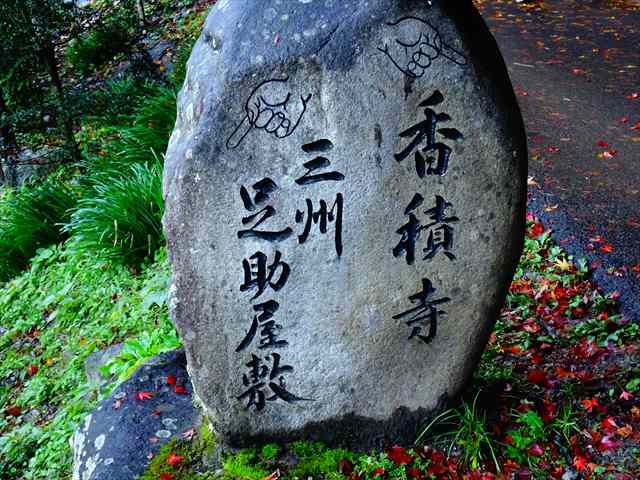 香積寺
三州
足助屋敷